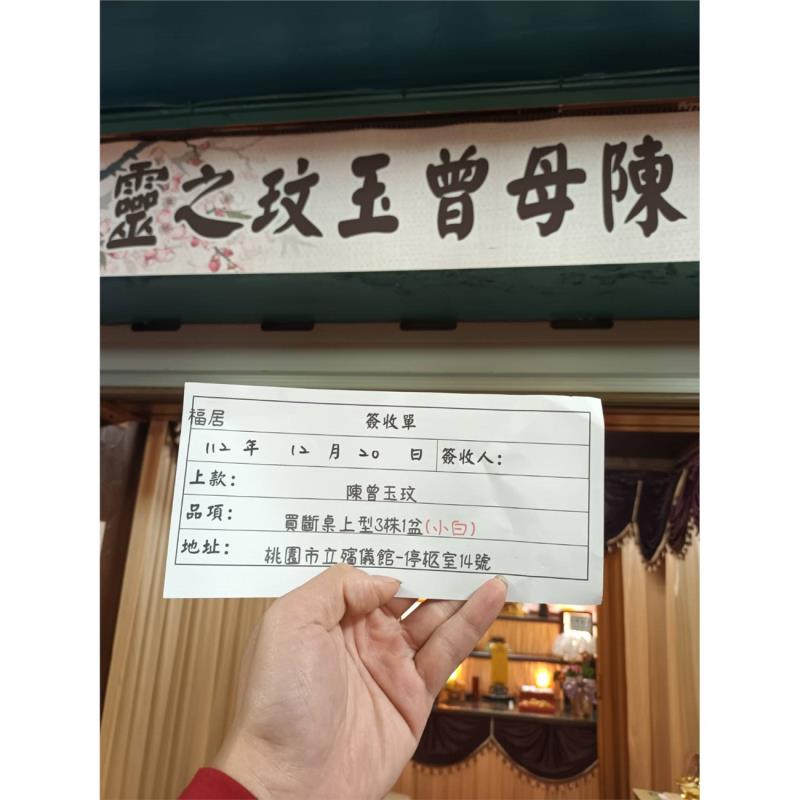 陳母曾玉玟之靈
福居 簽收單
112 年 12 月 20 日 簽收人：
上款： 陳曾玉玟
品項： 買斷桌上型3株1盆(小白)
地址： 桃園市立殯儀館-停柩室14號